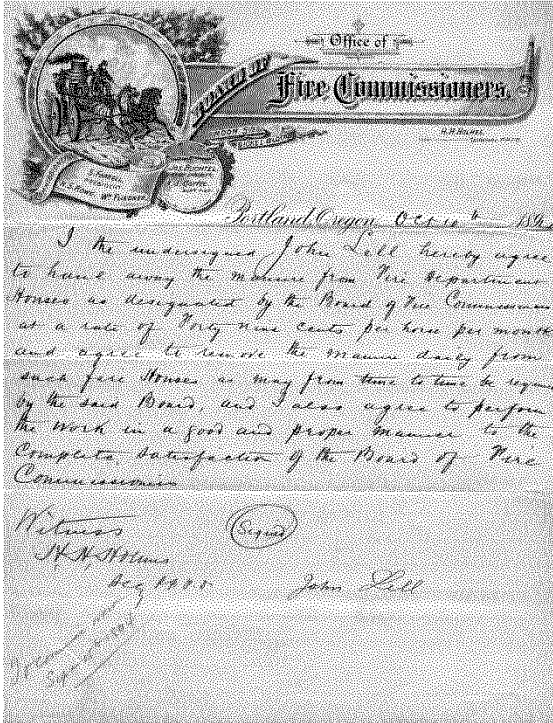 Office of
BOARD OF
Fire Commissioners.
H. H. HOLMES,
S. FARRELL,
H. S. ROWE, WM FLIEDNER.
JOS. BUCHTEL
Portland, Oregon, Oct 10th 189
I the undersigned John Lell hereby agree
to haul away the manure from Fire Department
Houses as designated by the Board of Fire Commissioners
at a rate of Forty nine cents per horse per month
and agree to remove the manure daily from
such fire Houses as may from time to time be requir
by the said Board, and I also agree to perform
the work in a good and proper manner to the
Complete satisfaction of the Board of Fire
Commissioners
Witness (Signed)
H H Holmes
John Lell